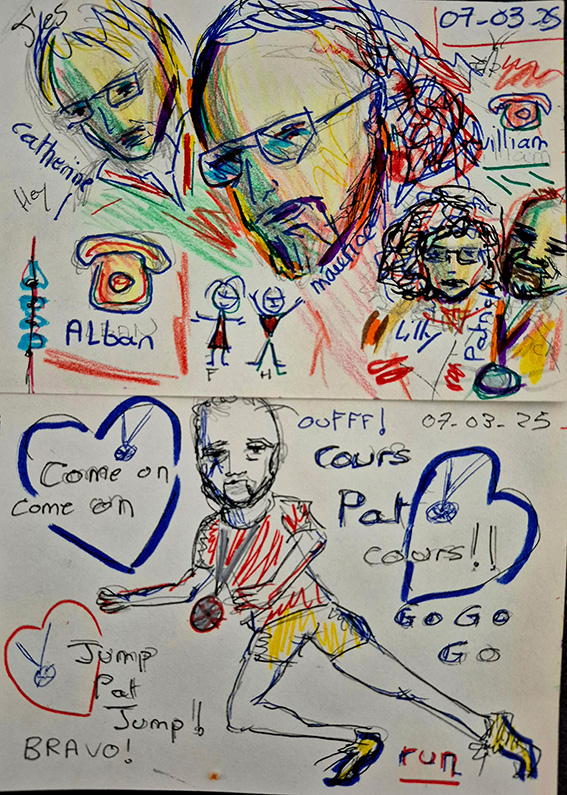 07-03-25
Catherine
Hey!
william
maurice
Alban
F H
Lilly
OUFFF!
07-03-25
Come on
come on
cours
Pat
cours!!
GO GO
GO
Jump
Pat
Jump!!
BRAVO!
run